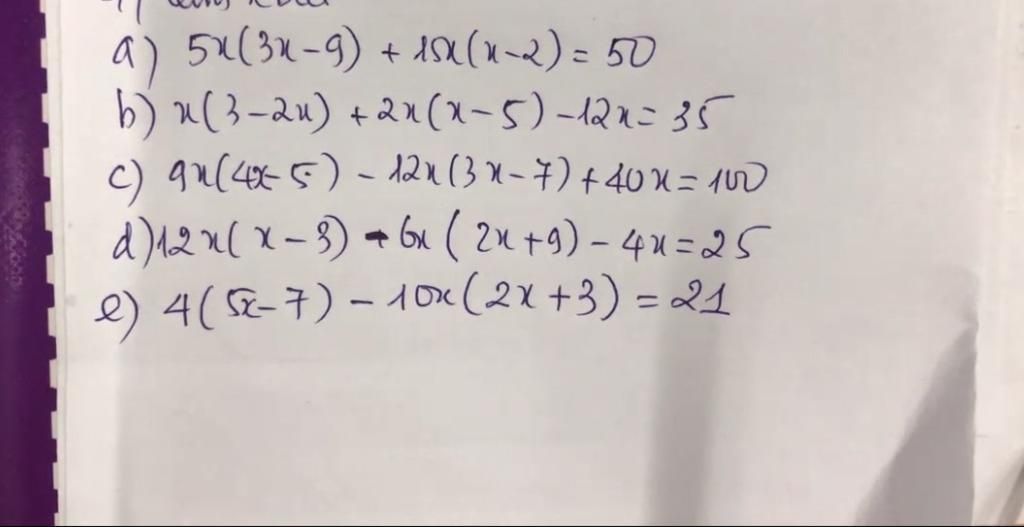 a) 5x(3x-9) + 15x(x-2) = 50
b) x(3-2x) + 2x(x-5) - 12x = 35
c) 9x(4x-5) - 12x(3x-7) + 40x = 100
d) 12x(x-3) - 6x(2x+9) - 4x = 25
e) 4(5x-7) - 10x(2x+3) = 21